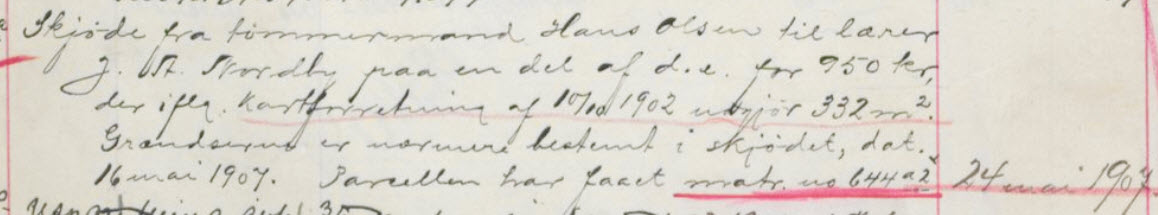 Skjøde fra tømmermand Hans Olsen til lærer
J. A. Nordby paa en del af d. e. for 950 kr,
der iflg. kartforretning af 10/10 1902 udgjør 332 m².
Grændserne er nærmere bestemt i skjødet, dat.
16 mai 1907. Parcellen har faaet matr. no 644 a2 24 mai 1907.